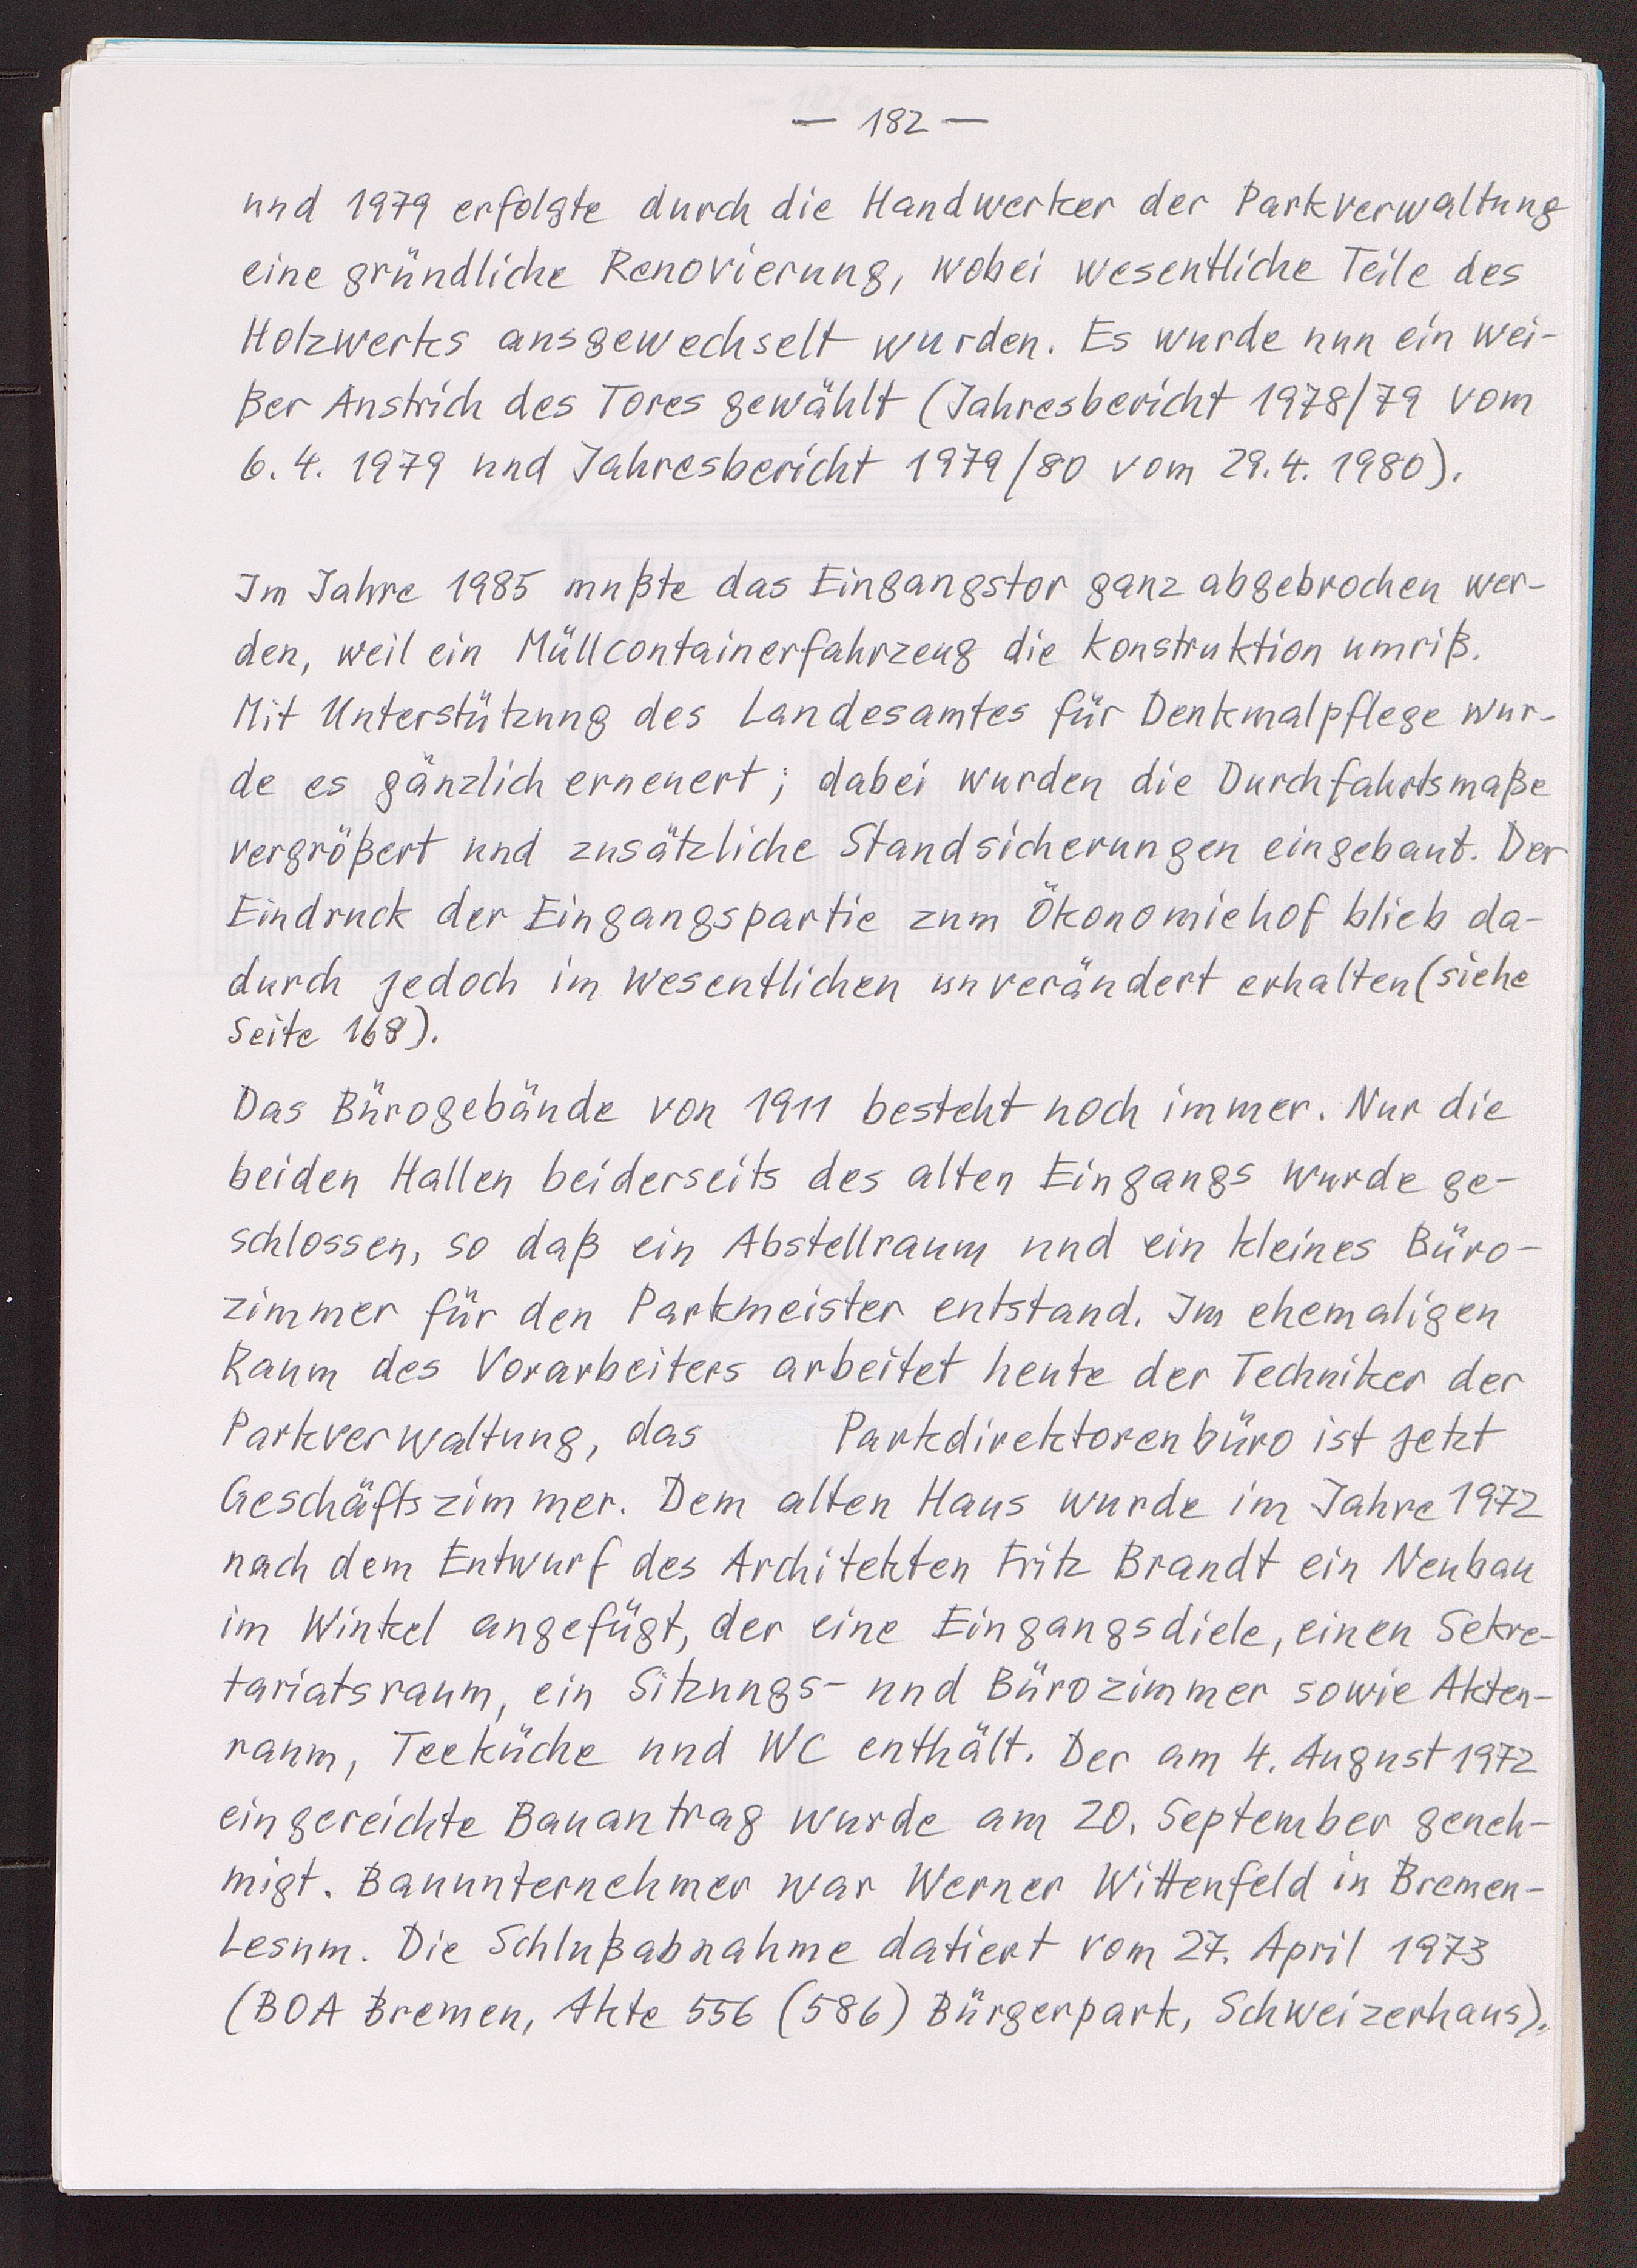 — 182 —
und 1979 erfolgte durch die Handwerker der Parkverwaltung
eine gründliche Renovierung, wobei wesentliche Teile des
Holzwerks ausgewechselt wurden. Es wurde nun ein wei-
ßer Anstrich des Tores gewählt (Jahresbericht 1978/79 vom
6. 4. 1979 und Jahresbericht 1979/80 vom 29. 4. 1980).
Im Jahre 1985 mußte das Eingangstor ganz abgebrochen wer-
den, weil ein Müllcontainerfahrzeug die Konstruktion umriß.
Mit Unterstützung des Landesamtes für Denkmalpflege wur-
de es gänzlich erneuert; dabei wurden die Durchfahrtsmaße
vergrößert und zusätzliche Standsicherungen eingebaut. Der
Eindruck der Eingangspartie zum Ökonomiehof blieb da-
durch jedoch im wesentlichen unverändert erhalten (siehe
Seite 168).
Das Bürogebäude von 1911 besteht noch immer. Nur die
beiden Hallen beiderseits des alten Eingangs wurde ge-
schlossen, so daß ein Abstellraum und ein kleines Büro-
zimmer für den Parkmeister entstand. Im ehemaligen
Raum des Vorarbeiters arbeitet heute der Techniker der
Parkverwaltung, das Parkdirektorenbüro ist jetzt
Geschäftszimmer. Dem alten Haus wurde im Jahre 1972
nach dem Entwurf des Architekten Fritz Brandt ein Neubau
im Winkel angefügt, der eine Eingangsdiele, einen Sekre-
tariatsraum, ein Sitzungs- und Bürozimmer sowie Akten-
raum, Teeküche und WC enthält. Der am 4. August 1972
eingereichte Bauantrag wurde am 20. September geneh-
migt. Bauunternehmer war Werner Wittenfeld in Bremen-
Lesum. Die Schlußabnahme datiert vom 27. April 1973
(BOA Bremen, Akte 556 (586) Bürgerpark, Schweizerhaus).